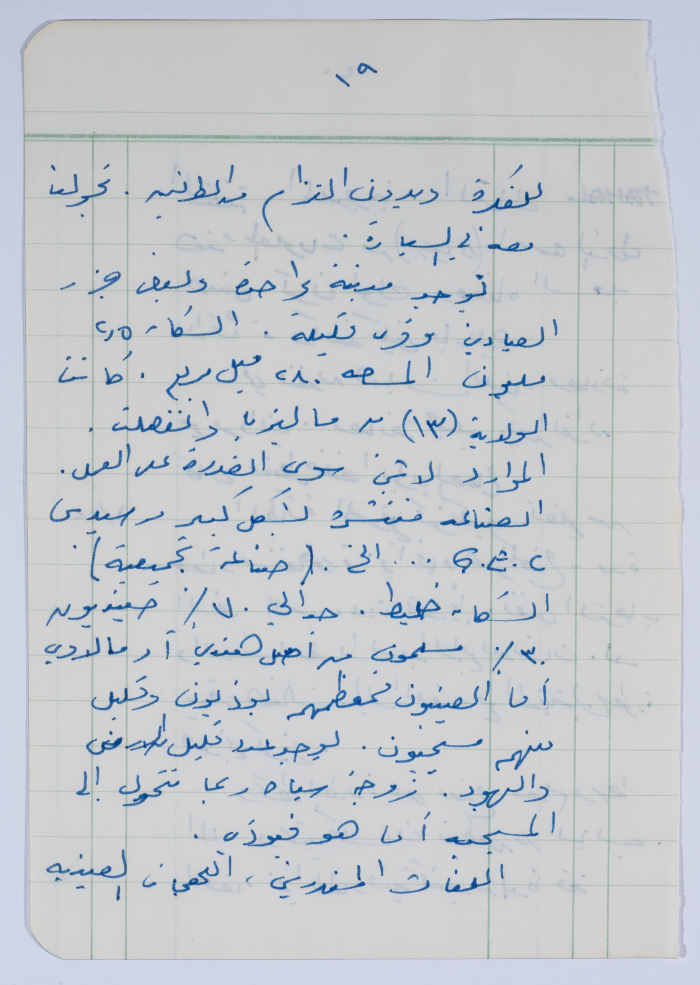 ١٩
للفكرة ويبدون التزام من الطرفين . تجولت
معه في السيارة .
توجد مدينة واحدة وبعض جزر
الصيادين وقرى قليلة . السكان ٢٫٥
مليون المساحه ٢٨٠ ميل مربع . كانت
الولاية (١٣) من ماليزيا وانفصلت .
الموارد لا شيء سوى القدرة على العمل .
الصناعه منتشرة بشكل كبير مرسيدس
G.E.C ... الخ . (صناعة تجميعية) .
السكان خليط . حوالي ٧٠٪ صينيون
٣٠٪ مسلمون من أصل هندي أو مالاوي
أما الصينيون فمعظمهم بوذيون وقليل
منهم مسيحيون . يوجد عدد قليل
واليهود . زوجة سياه ربما تتحول إلى
المسيحيه أما هو فبوذي .
اللغات المندرين ، اللهجات الصينيه